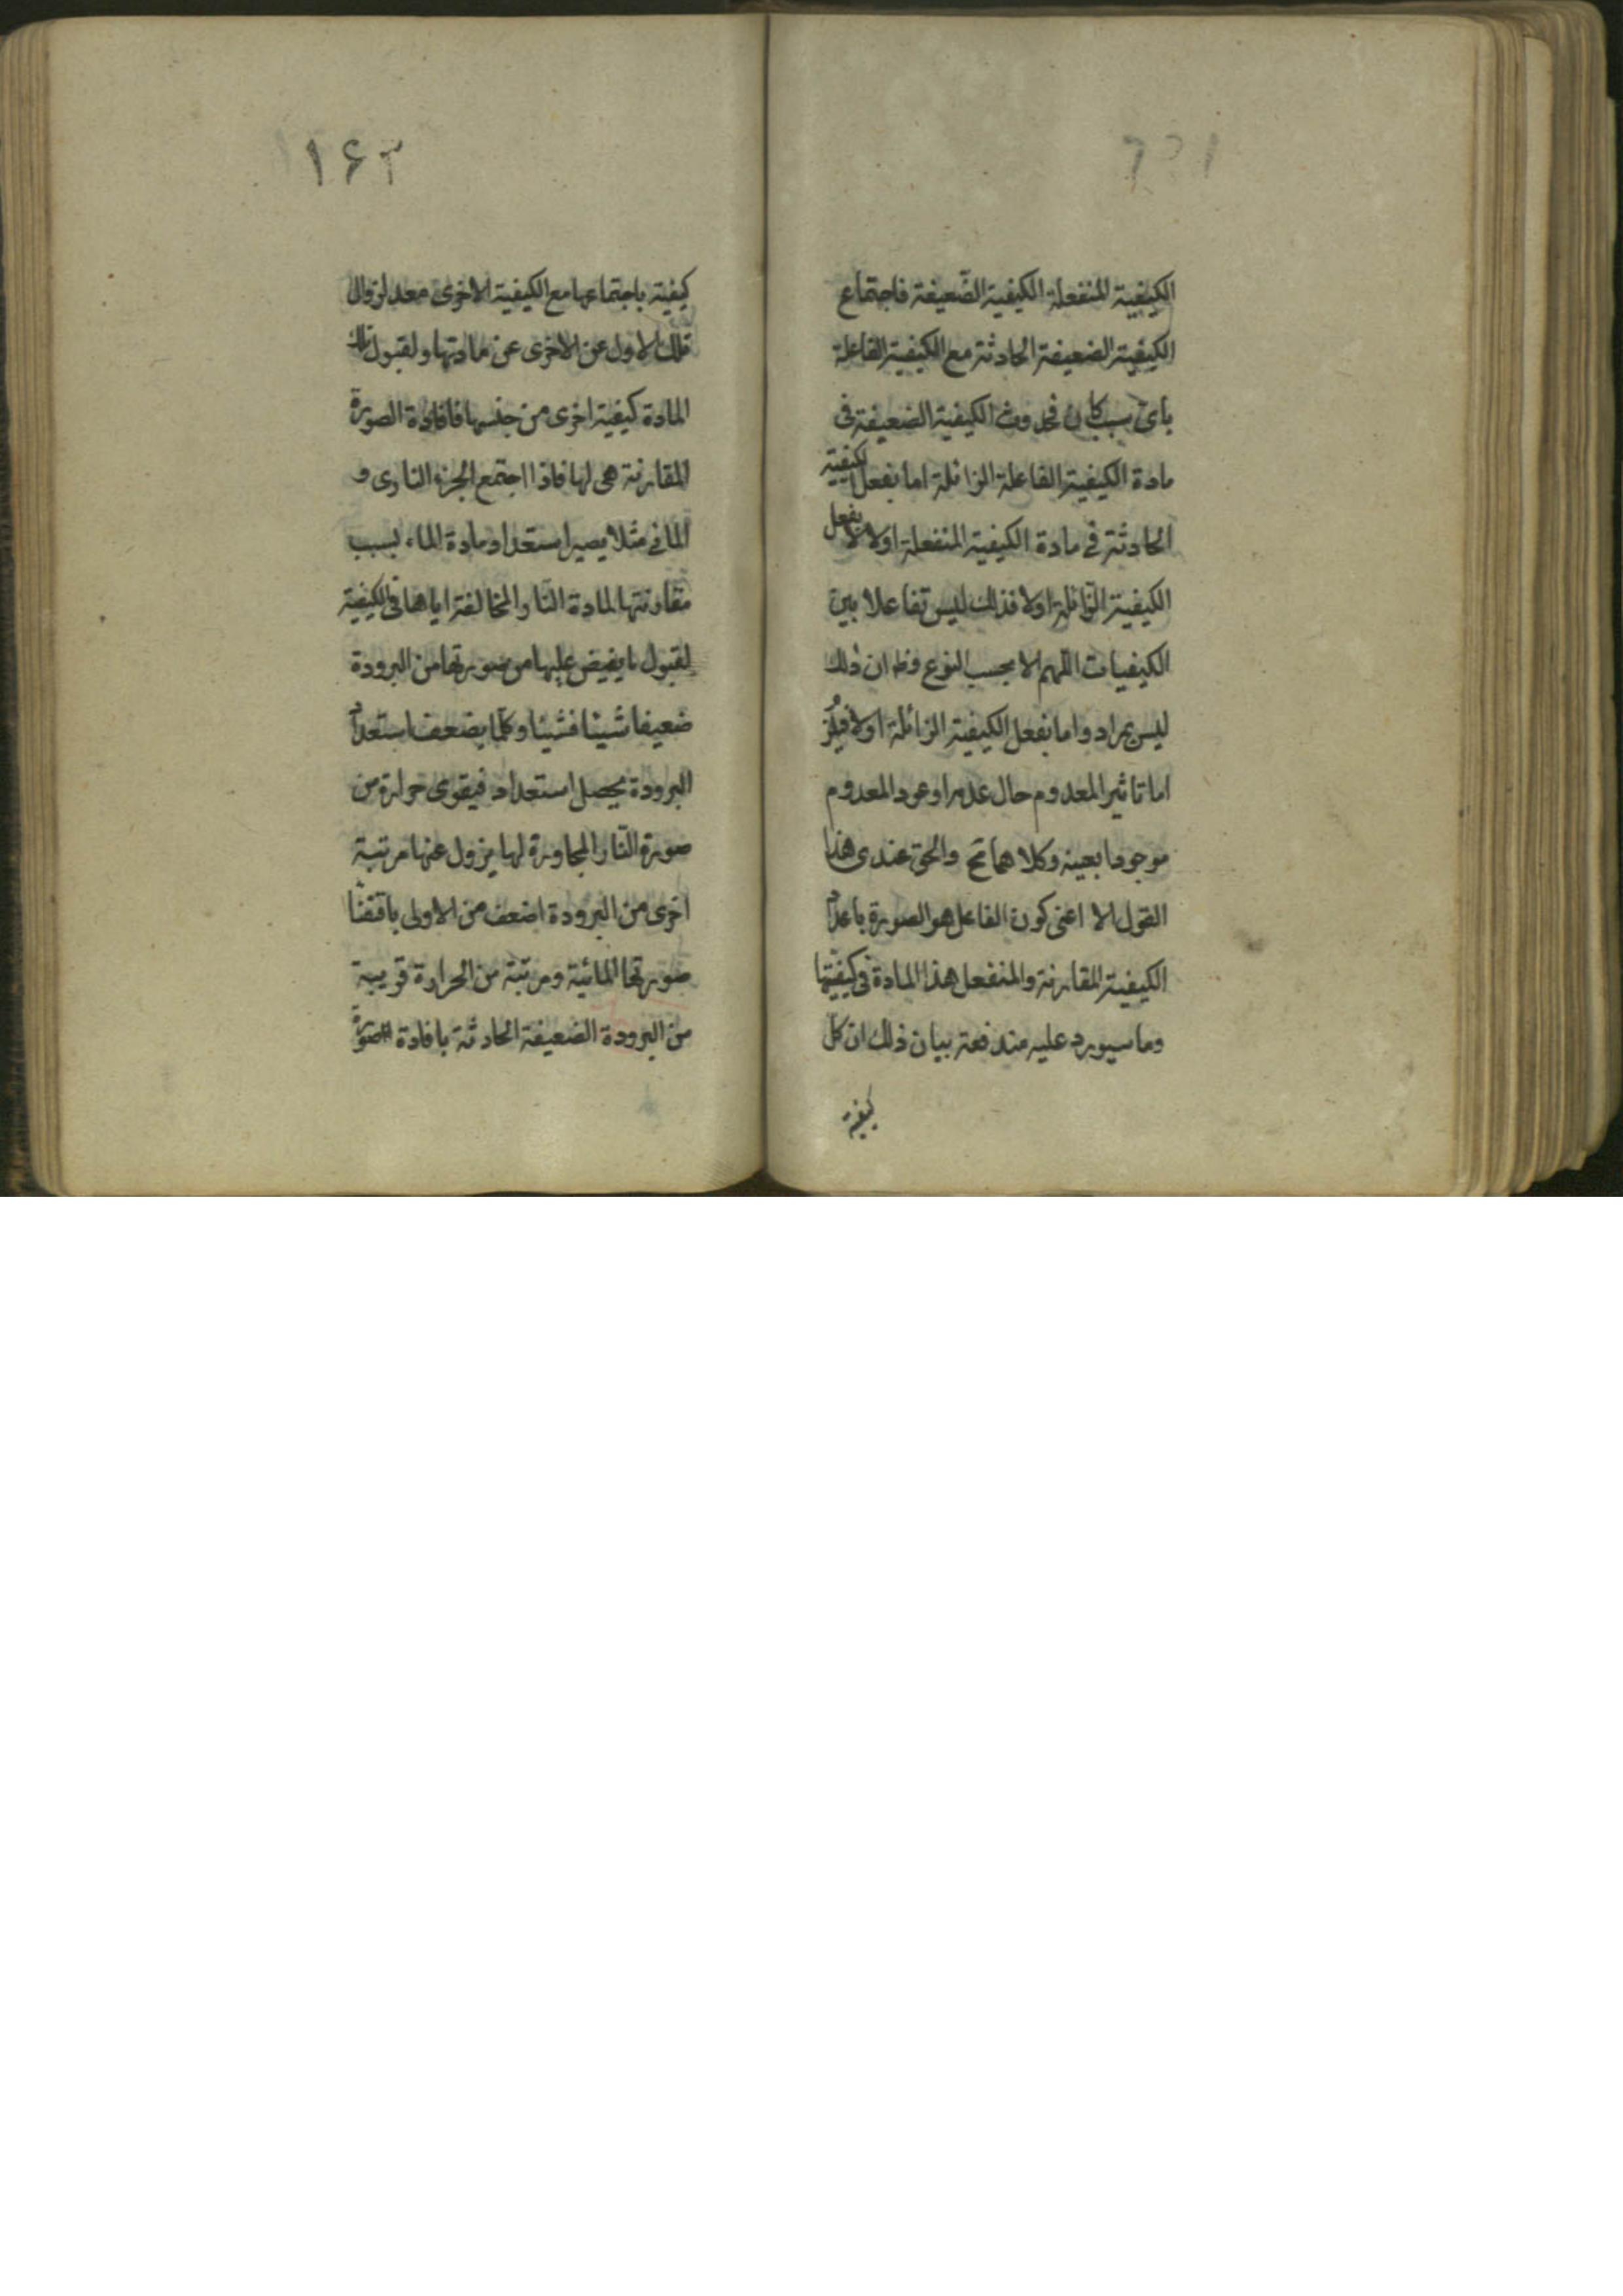 الكيفية المنفعلة الكيفية الضعيفة فاجتماع
الكيفية الضعيفة الحادثة مع الكيفية الفاعلة
بأى سبب كان فحدوث الكيفية الضعيفة فى
مادة الكيفية الفاعلة الزائلة اما بفعل الكيفية
الحادثة فى مادة الكيفية المنفعلة اولا لا بفعل
الكيفية الزائلة اولا فذلك ليس تفاعلا بين
الكيفيات اللهم الا بحسب النوع وظ ان ذلك
ليس بمراد واما بفعل الكيفية الزائلة اولا فيلزم
اما تاثير المعدوم حال عدمه او عود المعدوم
موجودا بعينه وكلاهما مح والحق عندى هذا
القول الا اعنى كون الفاعل هو الصورة باعداد
الكيفية المقارنة والمنفعل هذا المادة فى كيفيتها
وما سيورد عليه مندفعة بيان ذلك ان كل
كيفية
۱۶۲
كيفية باجتماعها مع الكيفية الاخرى معد لزوال
تلك الاول عن الاخرى عن مادتها ولقبول تلك
المادة كيفية اخرى من جنسها فافادة الصورة
المقارنة هى لها فاذا اجتمع الجزء النارى و
المائى مثلا يصير استعداد مادة الماء بسبب
مقارنتها لمادة النار المخالفة اياها فى الكيفية
لقبول ما يفيض عليها من صورتها من البرودة
ضعيفا شيئا فشيئا وكلما يضعف استعداد
البرودة يحصل استعداد فيقوى حرارة من
صورة النار المجاورة لها يزول عنها مرتبة
اخرى من البرودة اضعف من الاولى باقتضا
صورتها المائية ومرتبة من الحرارة قريبة
من البرودة الضعيفة الحادثة بافادة الصورة